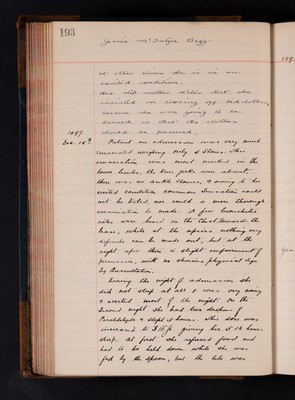 193
Jamie McIntyre Begg
At other times she is in an
excited condition.
Her step-mother states that she
insisted on tearing off bedclothes,
because she was going to be
burned so that the clothes
should be preserved.
1897
Dec. 18th Patient on admission was very much
emaciated weighing only 5 stones. This
emaciation was most marked in the
lower limbs, the knee jerks were absent,
there was no ankle clonus, & owing to her
excited condition common sensation could
not be tested, nor could a more thorough
examination be made. A few bronchitic
râles were heard in the Chest towards the
bases, while at the apices nothing very
definite can be made out, but at the
right apex there is slight impairment of
percussion, with no obvious physical sign
by Auscultation.
During the night of admission she
did not sleep at all & was very noisy
& excited most of the night. On the
second night she had two drachms of
Paraldehyde & slept 2 hours. This dose was
increased to 3 giving her 5 hours
sleep. At first she refused food and
had to be held down while she was
fed by the spoon, but she was